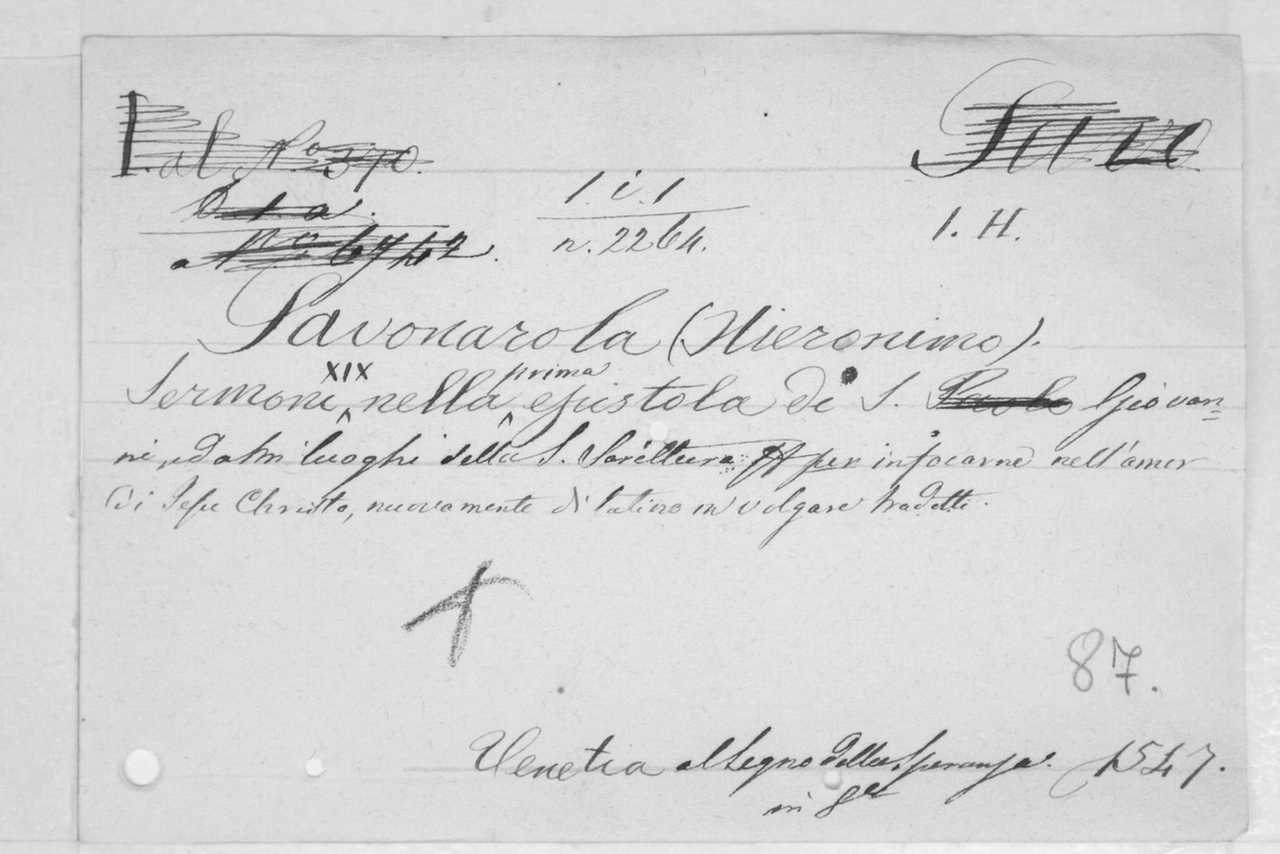 Pal No 370. Savo
D 1 a. 1. i. 1
No 6742. n. 2264. 1. H.
Savonarola (Hieronimo).
Sermoni XIX nella prima epistola di S. Paolo Giovan=
ni, ed altri luoghi della S. Scrittura per infocarne nell'amor
di Jesu Christo, nuovamente di latino in volgare tradotti.
87.
Venetia al segno della Speranza. 1547.
in 8º